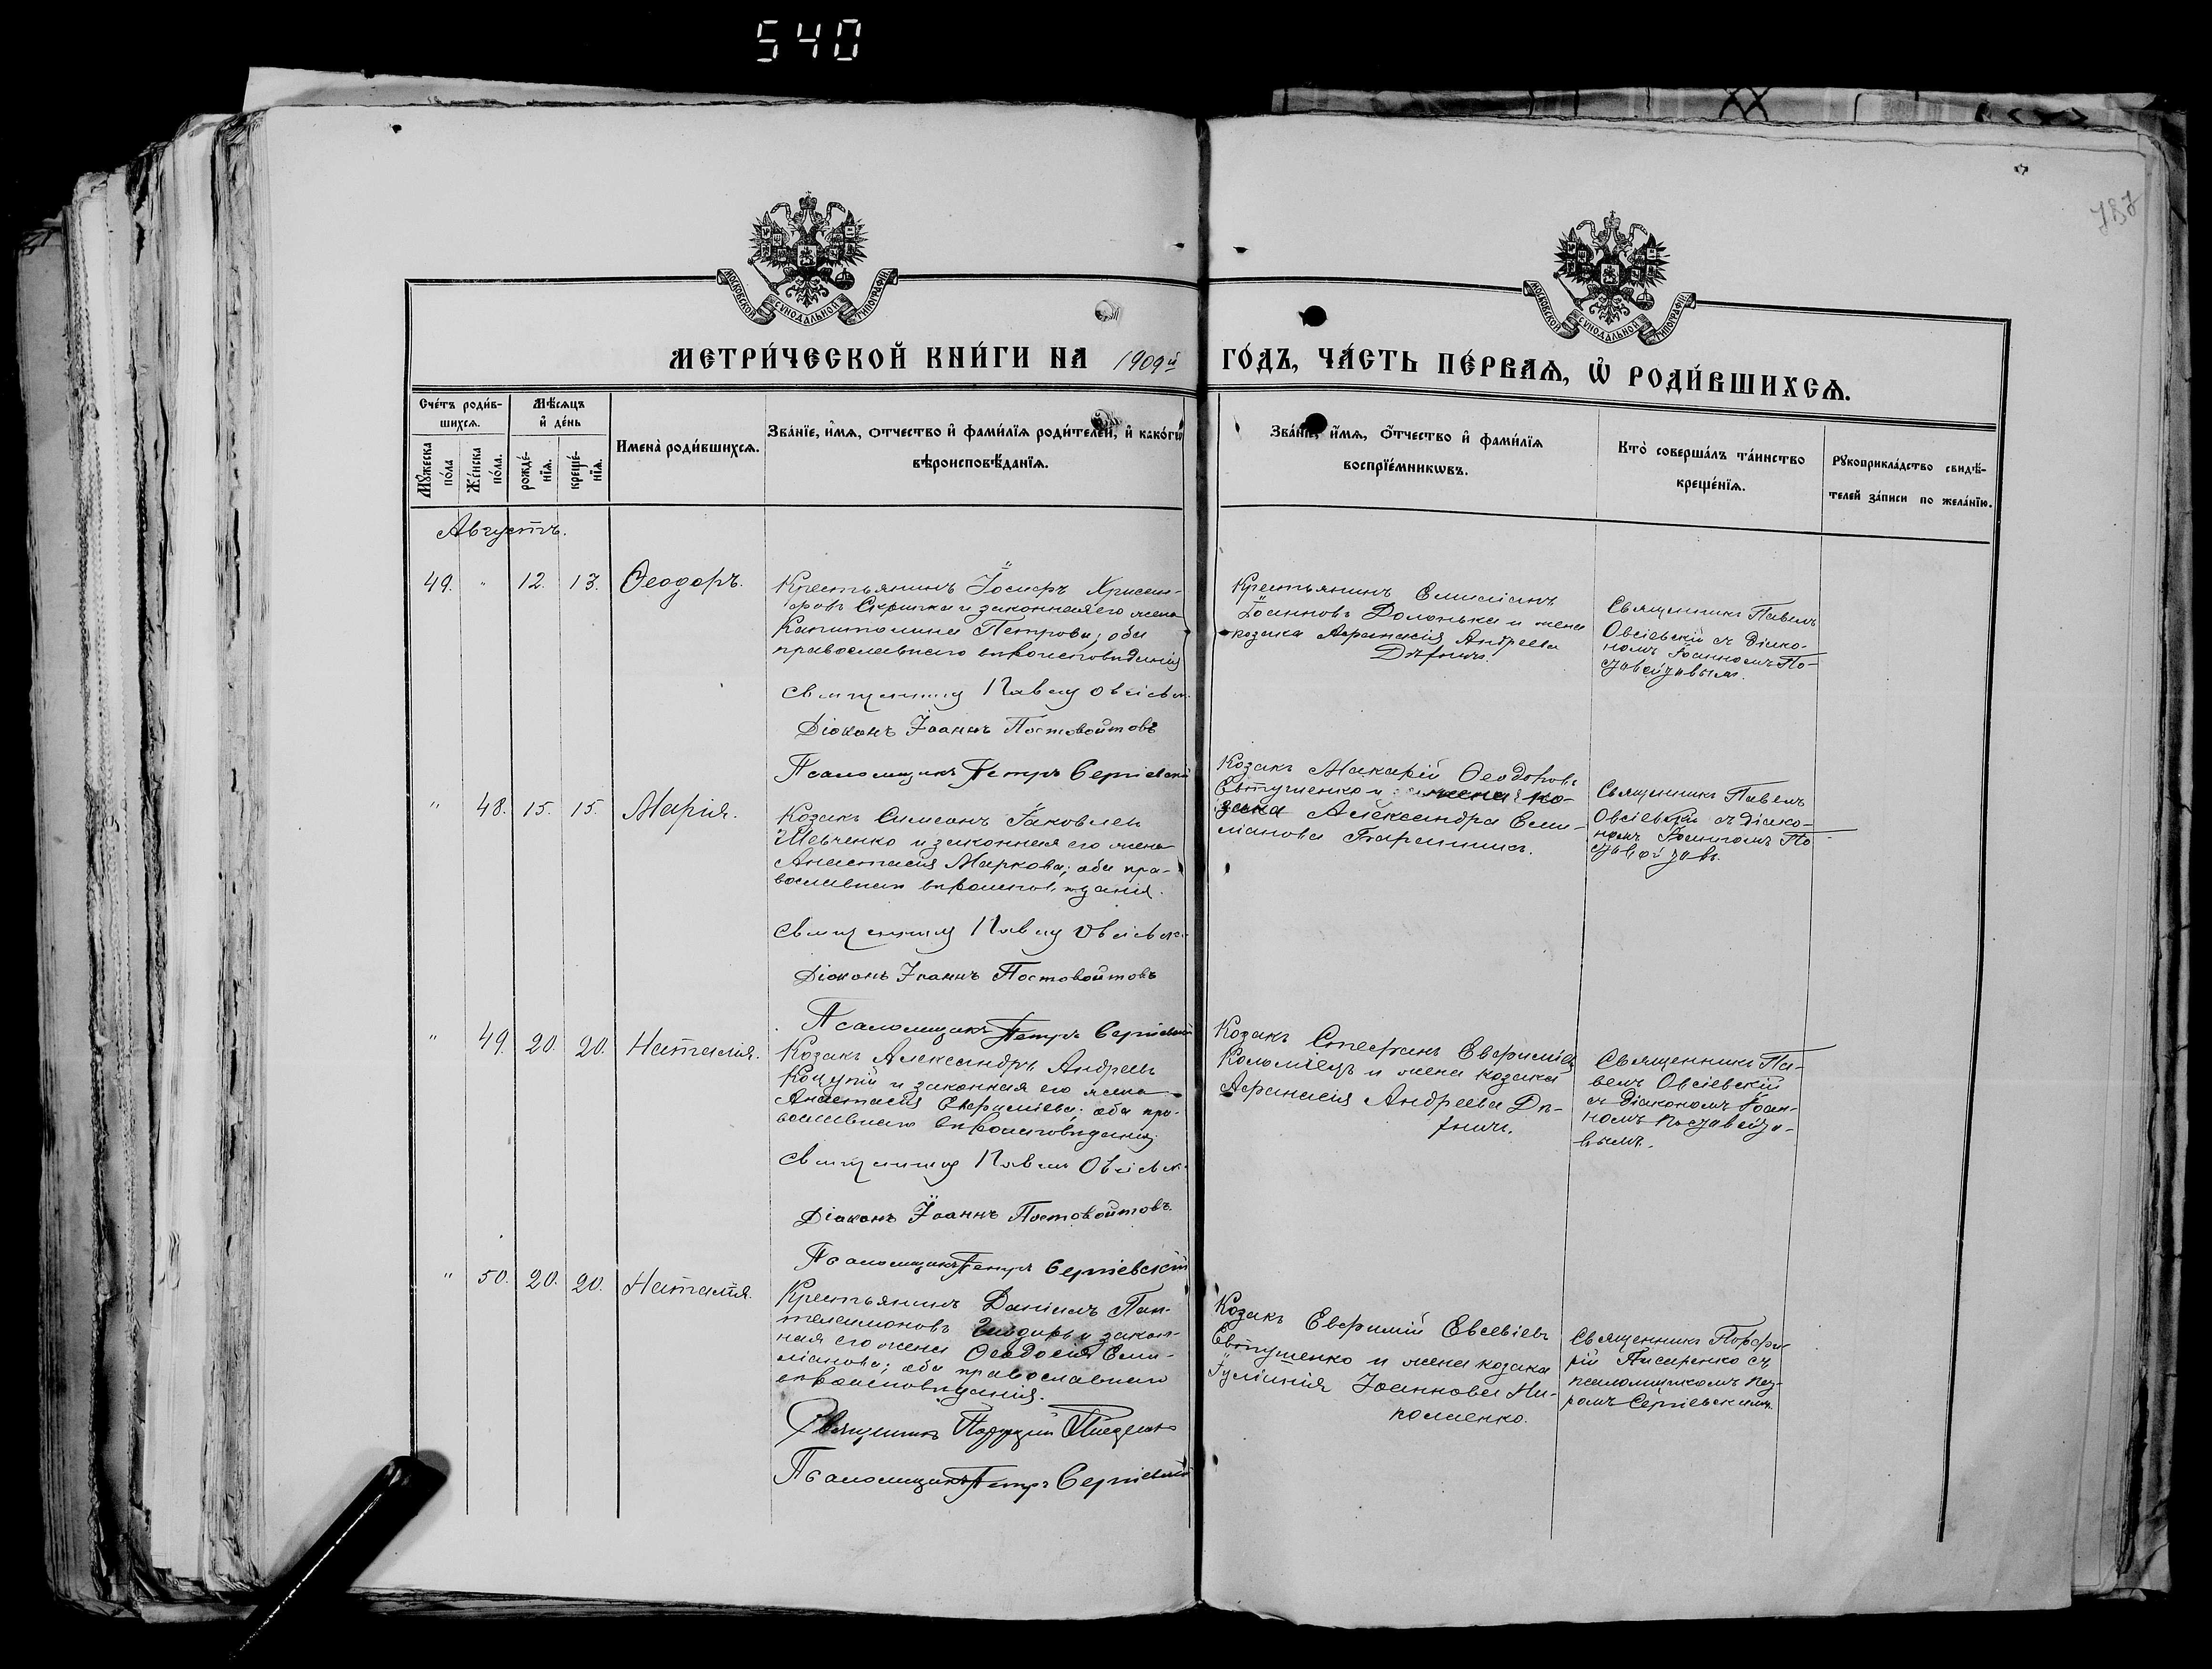 540
787
МОСКОВСКОЙ СѴНОДАЛЬНОЙ ТИПОГРАФІИ
МОСКОВСКОЙ СѴНОДАЛЬНОЙ ТИПОГРАФІИ
МЕТРИ́ЧЕСКОЙ КНИ́ГИ НА 1909й ГО́ДЪ, ЧА́СТЬ ПЕ́РВАѦ, Ѡ҆ РОДИ́ВШИХСѦ.
Сче́тъ роди́в-
шихсѧ.
Мꙋ́жеска по́ла
Же́нска по́ла.
Мѣ́сѧцъ
и҆ де́нь
рожде́-
нїѧ.
креще́-
нїѧ.
Имена̀ роди́вшихсѧ.
Зва́нїе, и҆́мѧ, о́тчество и҆ фами́лїѧ роди́телей, и҆ како́гѡ
вѣроисповѣ́данїѧ.
Зва́нїе, и҆́мѧ, о́тчество и҆ фами́лїѧ
воспрїе́мникѡвъ.
Кто̀ соверша́лъ та́инство
креще́нїѧ.
Рꙋкоприкла́дство свидѣ́-
телей за́писи по жела́нїю.
Августъ.
49. " 12. 13. Ѳеодоръ.
Крестьянинъ Іосифъ Хрисан-
фовъ Скрипка и законная его жена
Капитолина Петрова; оба
православнаго вѣроисповѣданія
Священникъ Павелъ Овсіевск.
Діаконъ Іоаннъ Постовойтовъ
Псаломщикъ Петръ Сергіевскій
Крестьянинъ Емиліанъ
Іоанновъ Долонька и жена
козака Афанасія Андреева
Священникъ Павелъ
Овсіевскій съ діако-
номъ Іоанномъ По-
стовойтовымъ.
" 48. 15. 15. Марія.
Козакъ Симеонъ Іаковлевъ
Шевченко и законная его жена
Анастасія Маркова; оба пра-
вославнаго вѣроисповѣданія.
Священникъ Павелъ Овсіевск.
Діаконъ Іоаннъ Постовойтовъ
Псаломщикъ Петръ Сергіевскій
Козакъ Макарій Ѳеодоровъ
Евтушенко и жена ко-
зака Александра Еми-
ліанова
Священникъ Павелъ
Овсіевскій съ діако-
номъ Іоанномъ По
стовойтов.
" 49. 20. 20. Наталія.
Козакъ Александръ Андреевъ
Коцупій и законная его жена
Анастасія Евфиміева; оба пра-
вославнаго вѣроисповѣданія.
Священникъ Павелъ Овсіевск.
Діаконъ Іоаннъ Постовойтовъ.
Псаломщикъ Петръ Сергіевскій
Козакъ Стефанъ Евфиміевъ
Коломіецъ и жена козака
Афанасія Андреева
Священникъ Па-
велъ Овсіевскій
съ діакономъ Іоан-
номъ Постовойто-
вымъ.
" 50. 20. 20. Наталія.
Крестьянинъ Даніилъ Пан-
телеимоновъ и закон-
ная его жена Ѳеодосія Еми-
ліанова; оба православнаго
вѣроисповѣданія.
Священникъ Порфирій Писаренко
Псаломщикъ Петръ Сергіевскій
Козакъ Евфимій Евсевіевъ
Евтушенко и жена козака
Іуліанія Іоаннова Ни-
Священникъ Порфи-
рій Писаренко съ
псаломщикомъ Пет-
ромъ Сергіевскимъ.